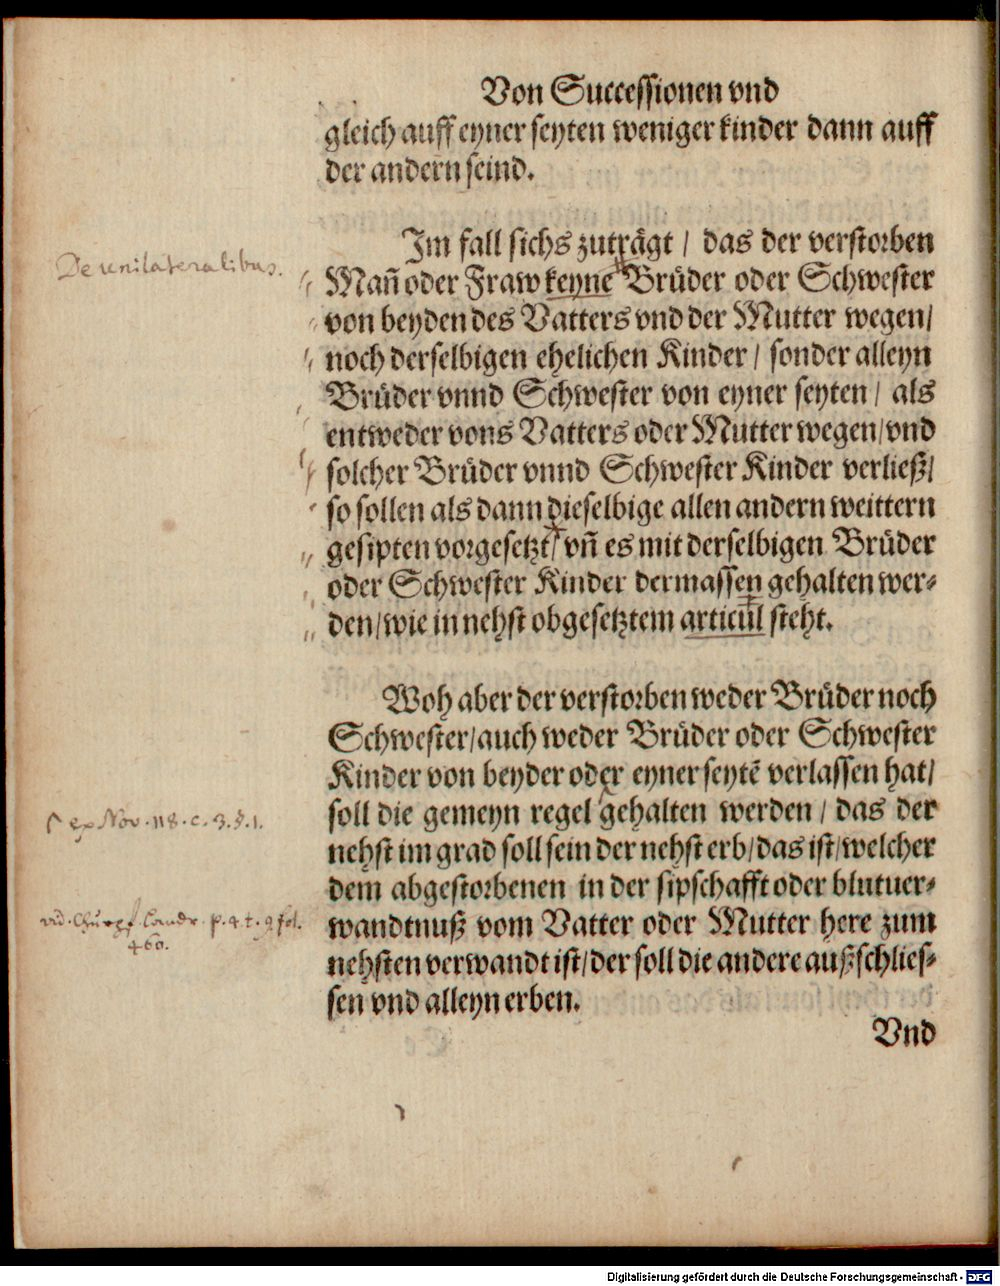 Von Successionen vnd
gleich auff eyner seyten weniger kinder dann auff
der andern seind.
Im fall sichs zuträgt / das der verstorben
De unilateralibus.
Mañ oder Fraw keyne Brüder oder Schwester
von beyden des Vatters vnd der Mutter wegen /
noch derselbigen ehelichen Kinder / sonder alleyn
Brüder vnnd Schwester von eyner seyten / als
entweder vons Vatters oder Mutter wegen / vnd
solcher Brüder vnnd Schwester Kinder verließ /
so sollen als dann dieselbige allen andern weittern
gesipten vorgesetzt / vñ es mit derselbigen Brüder
oder Schwester Kinder dermassen gehalten wer-
den / wie in nehst obgesetztem articul steht.
Woh aber der verstorben weder Brüder noch
Schwester / auch weder Brüder oder Schwester
Kinder von beyder oder eyner seytē verlassen hat /
soll die gemeyn regel gehalten werden / das der
ex Nov. 118. c. 3. §. 1.
nehst im grad soll sein der nehst erb / das ist / welcher
dem abgestorbenen in der sipschafft oder blutuer-
wandtnuß vom Vatter oder Mutter here zum
vid. Churpf. Landr. p. 4 t. 9 fol.
460.
nehsten verwandt ist / der soll die andere außschlies-
sen vnd alleyn erben.
Vnd
Digitalisierung gefördert durch die Deutsche Forschungsgemeinschaft - DFG